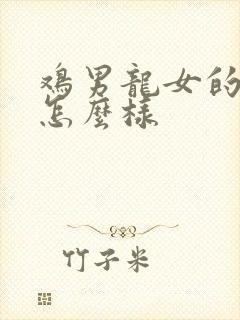 鸡男龍女的
怎麼樣
竹子米